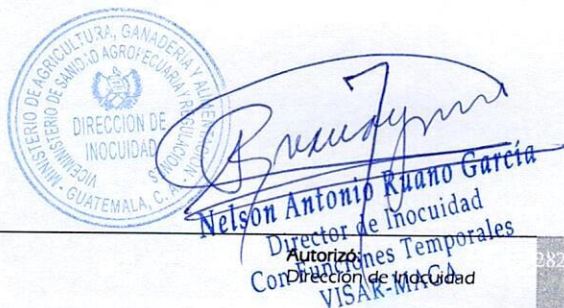 MINISTERIO DE AGRICULTURA, GANADERIA Y ALIMENTACION
VICEMINISTERIO DE SANIDAD AGROPECUARIA Y REGULACIONES
DIRECCION DE
INOCUIDAD
GUATEMALA, C. A.
Nelson Antonio Ruano García
Director de Inocuidad
Con Funciones Temporales
VISAR-MAGA
Autorizó:
Dirección de Inocuidad
282